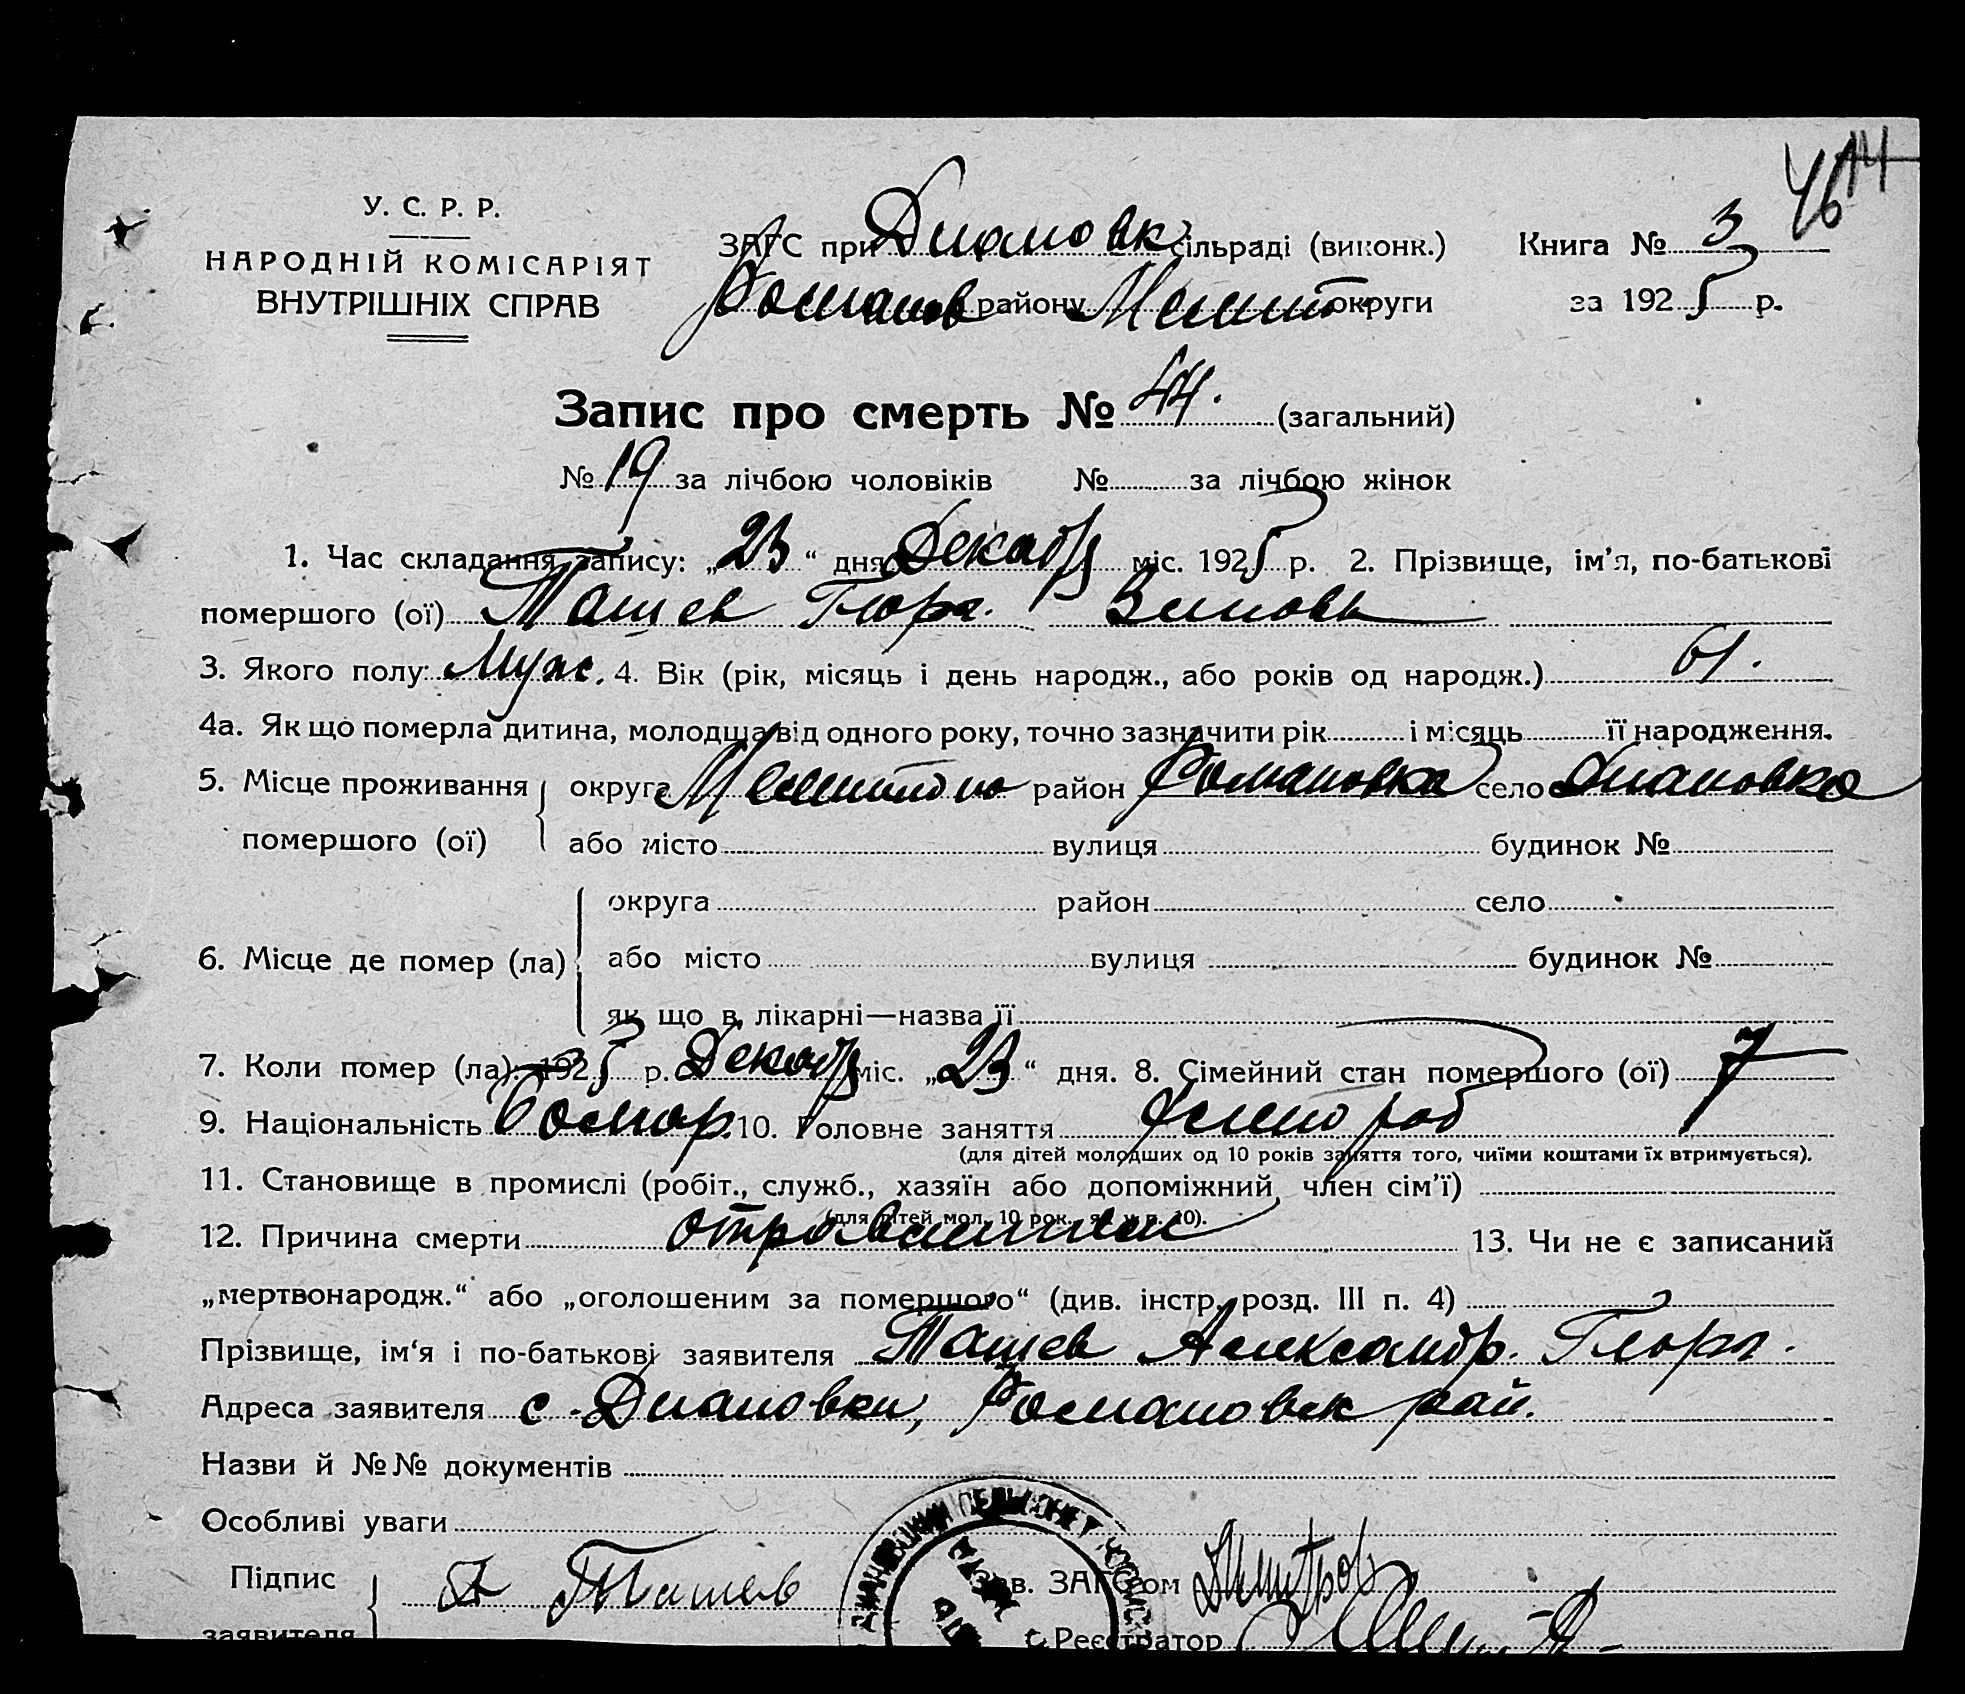 46 14
У. С. Р. Р.
НАРОДНІЙ КОМІСАРІЯТ
ВНУТРІШНІХ СПРАВ
ЗАГС при Диановк сільраді (виконк.)
Романов району Мелит округи
Книга № 3
за 1925 р.
Запис про смерть № 44. (загальний)
№ 19 за лічбою чоловіків № за лічбою жінок
1. Час складання запису: „23“ дня Декабр міс. 1925 р. 2. Прізвище, ім'я, по-батькові
помершого (ої) Ташев Георг.
3. Якого полу: Муж. 4. Вік (рік, місяць і день народж., або років од народж.) 61.
4а. Як що померла дитина, молодша від одного року, точно зазначити рік і місяць її народження.
5. Місце проживання помершого (ої) округа район Романовка село Диановка
або місто вулиця будинок №
6. Місце де помер (ла) округа район село
або місто вулиця будинок №
як що в лікарні—назва її
7. Коли помер (ла): 1925 р. Декабр міс. „23“ дня. 8. Сімейний стан помершого (ої)
9. Національність Болгар. 10. Головне заняття
(для дітей молодших од 10 років заняття того, чиїми коштами їх втримується).
11. Становище в промислі (робіт., служб., хазяїн або допоміжний член сім'ї)
(для дітей мол. 10 рок. як у п. 10).
12. Причина смерти 13. Чи не є записаний
„мертвонародж.“ або „оголошеним за помершого“ (див. інстр. розд. III п. 4)
Прізвище, ім'я і по-батькові заявителя Ташев Александр. Георг.
Адреса заявителя с. Диановки, Романовск рай.
Назви й №№ документів
Особливі уваги
Підпис заявителя Ташев
Зав. ЗАГСом Димитров
Реєстратор